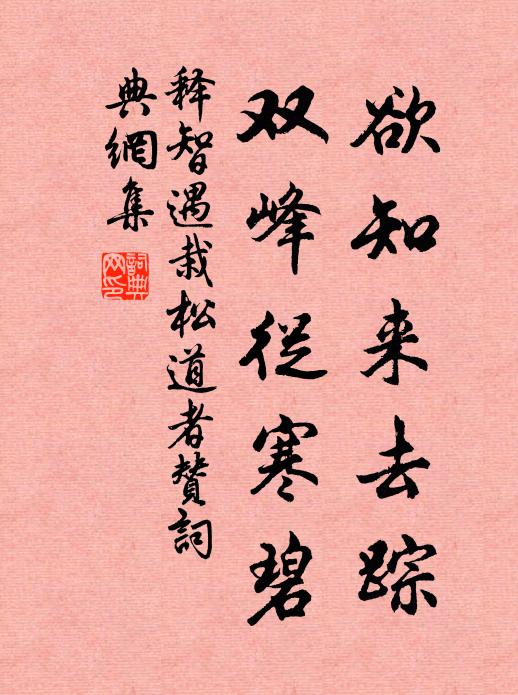 欲知来去踪
双峰従寒碧
释智遇栽松道者赞詞
典網集
詞典网印